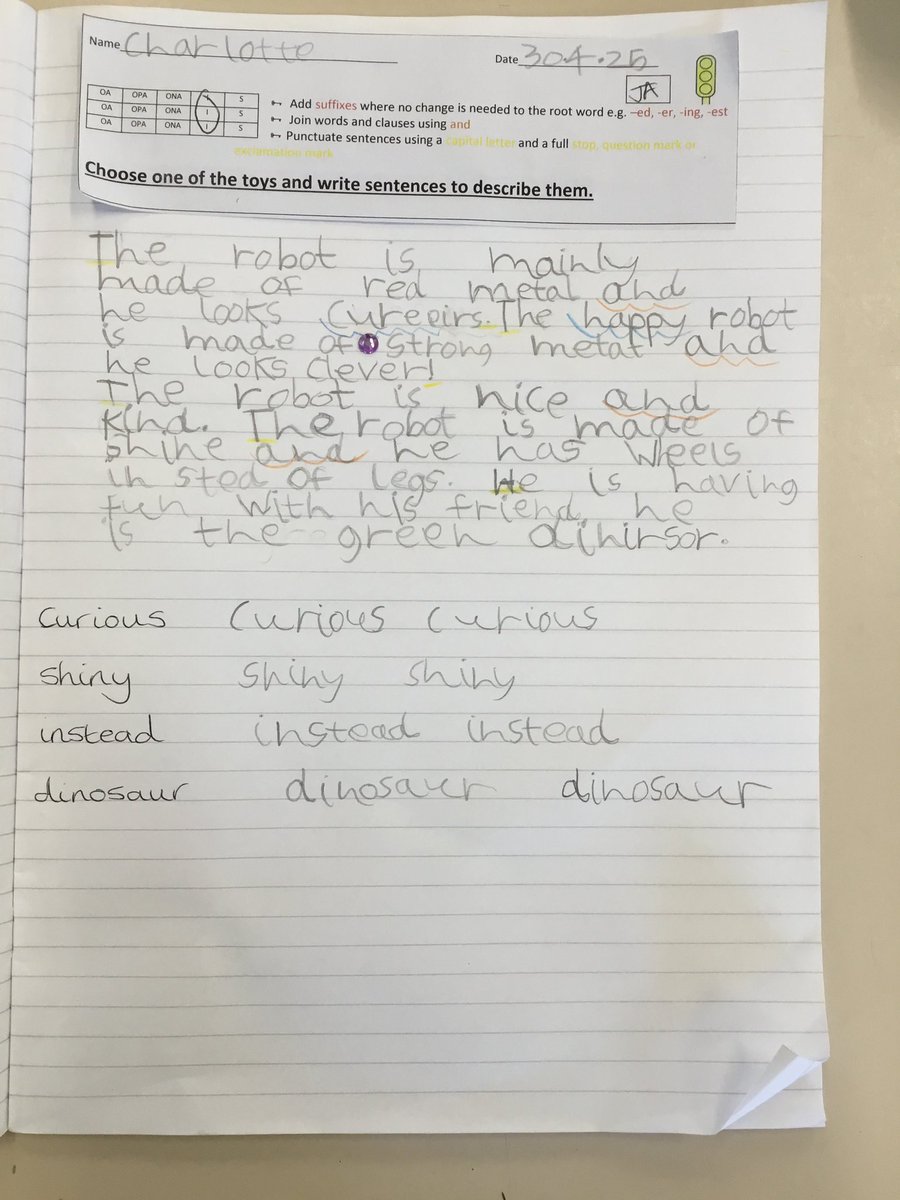 Name Charlotte
Date 30.4.25
JA
OA OPA ONA I S
OA OPA ONA I S
OA OPA ONA I S
Add suffixes where no change is needed to the root word e.g. –ed, -er, -ing, -est
Join words and clauses using and
Punctuate sentences using a capital letter and a full stop, question mark or
exclamation mark
Choose one of the toys and write sentences to describe them.
The robot is mainly
made of red metal and
he looks Cureeirs. The happy robot
is made of strong metal and
he looks clever!
The robot is nice and
kind. The robot is made of
shine and he has wleels
in sted of legs. He is having
fun with his friend, he
is the green dinirsor.
curious Curious Curious
shiny shiny shiny
instead instead instead
dinosaur dinosaur dinosaur